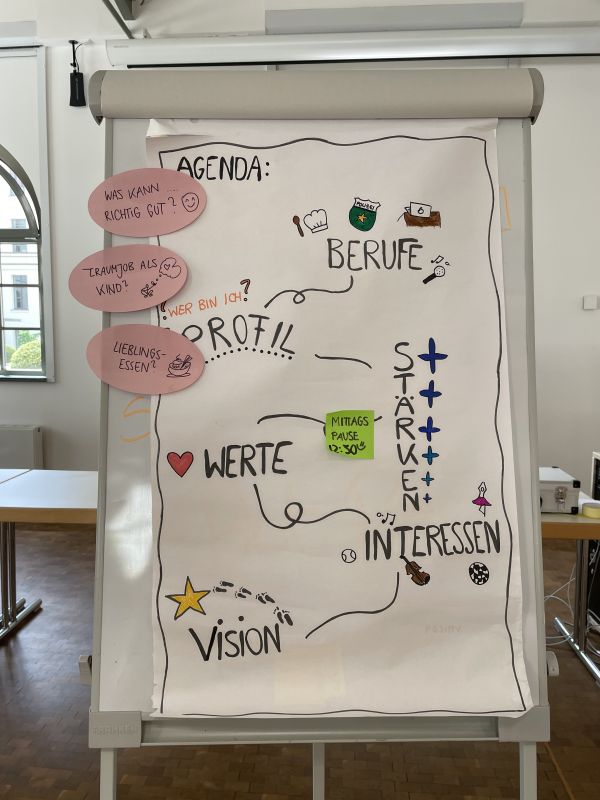 AGENDA:
WAS KANN ....
RICHTIG GUT?
TRAUMJOB ALS
KIND?
LIEBLINGS-
ESSEN?
POLIZEI
BERUFE
?WER BIN ICH?
PROFIL
STÄRKEN
MITTAGS
PAUSE
12:30
WERTE
INTERESSEN
VISION